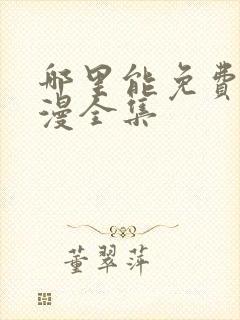 哪里能免费
漫全集
董翠萍